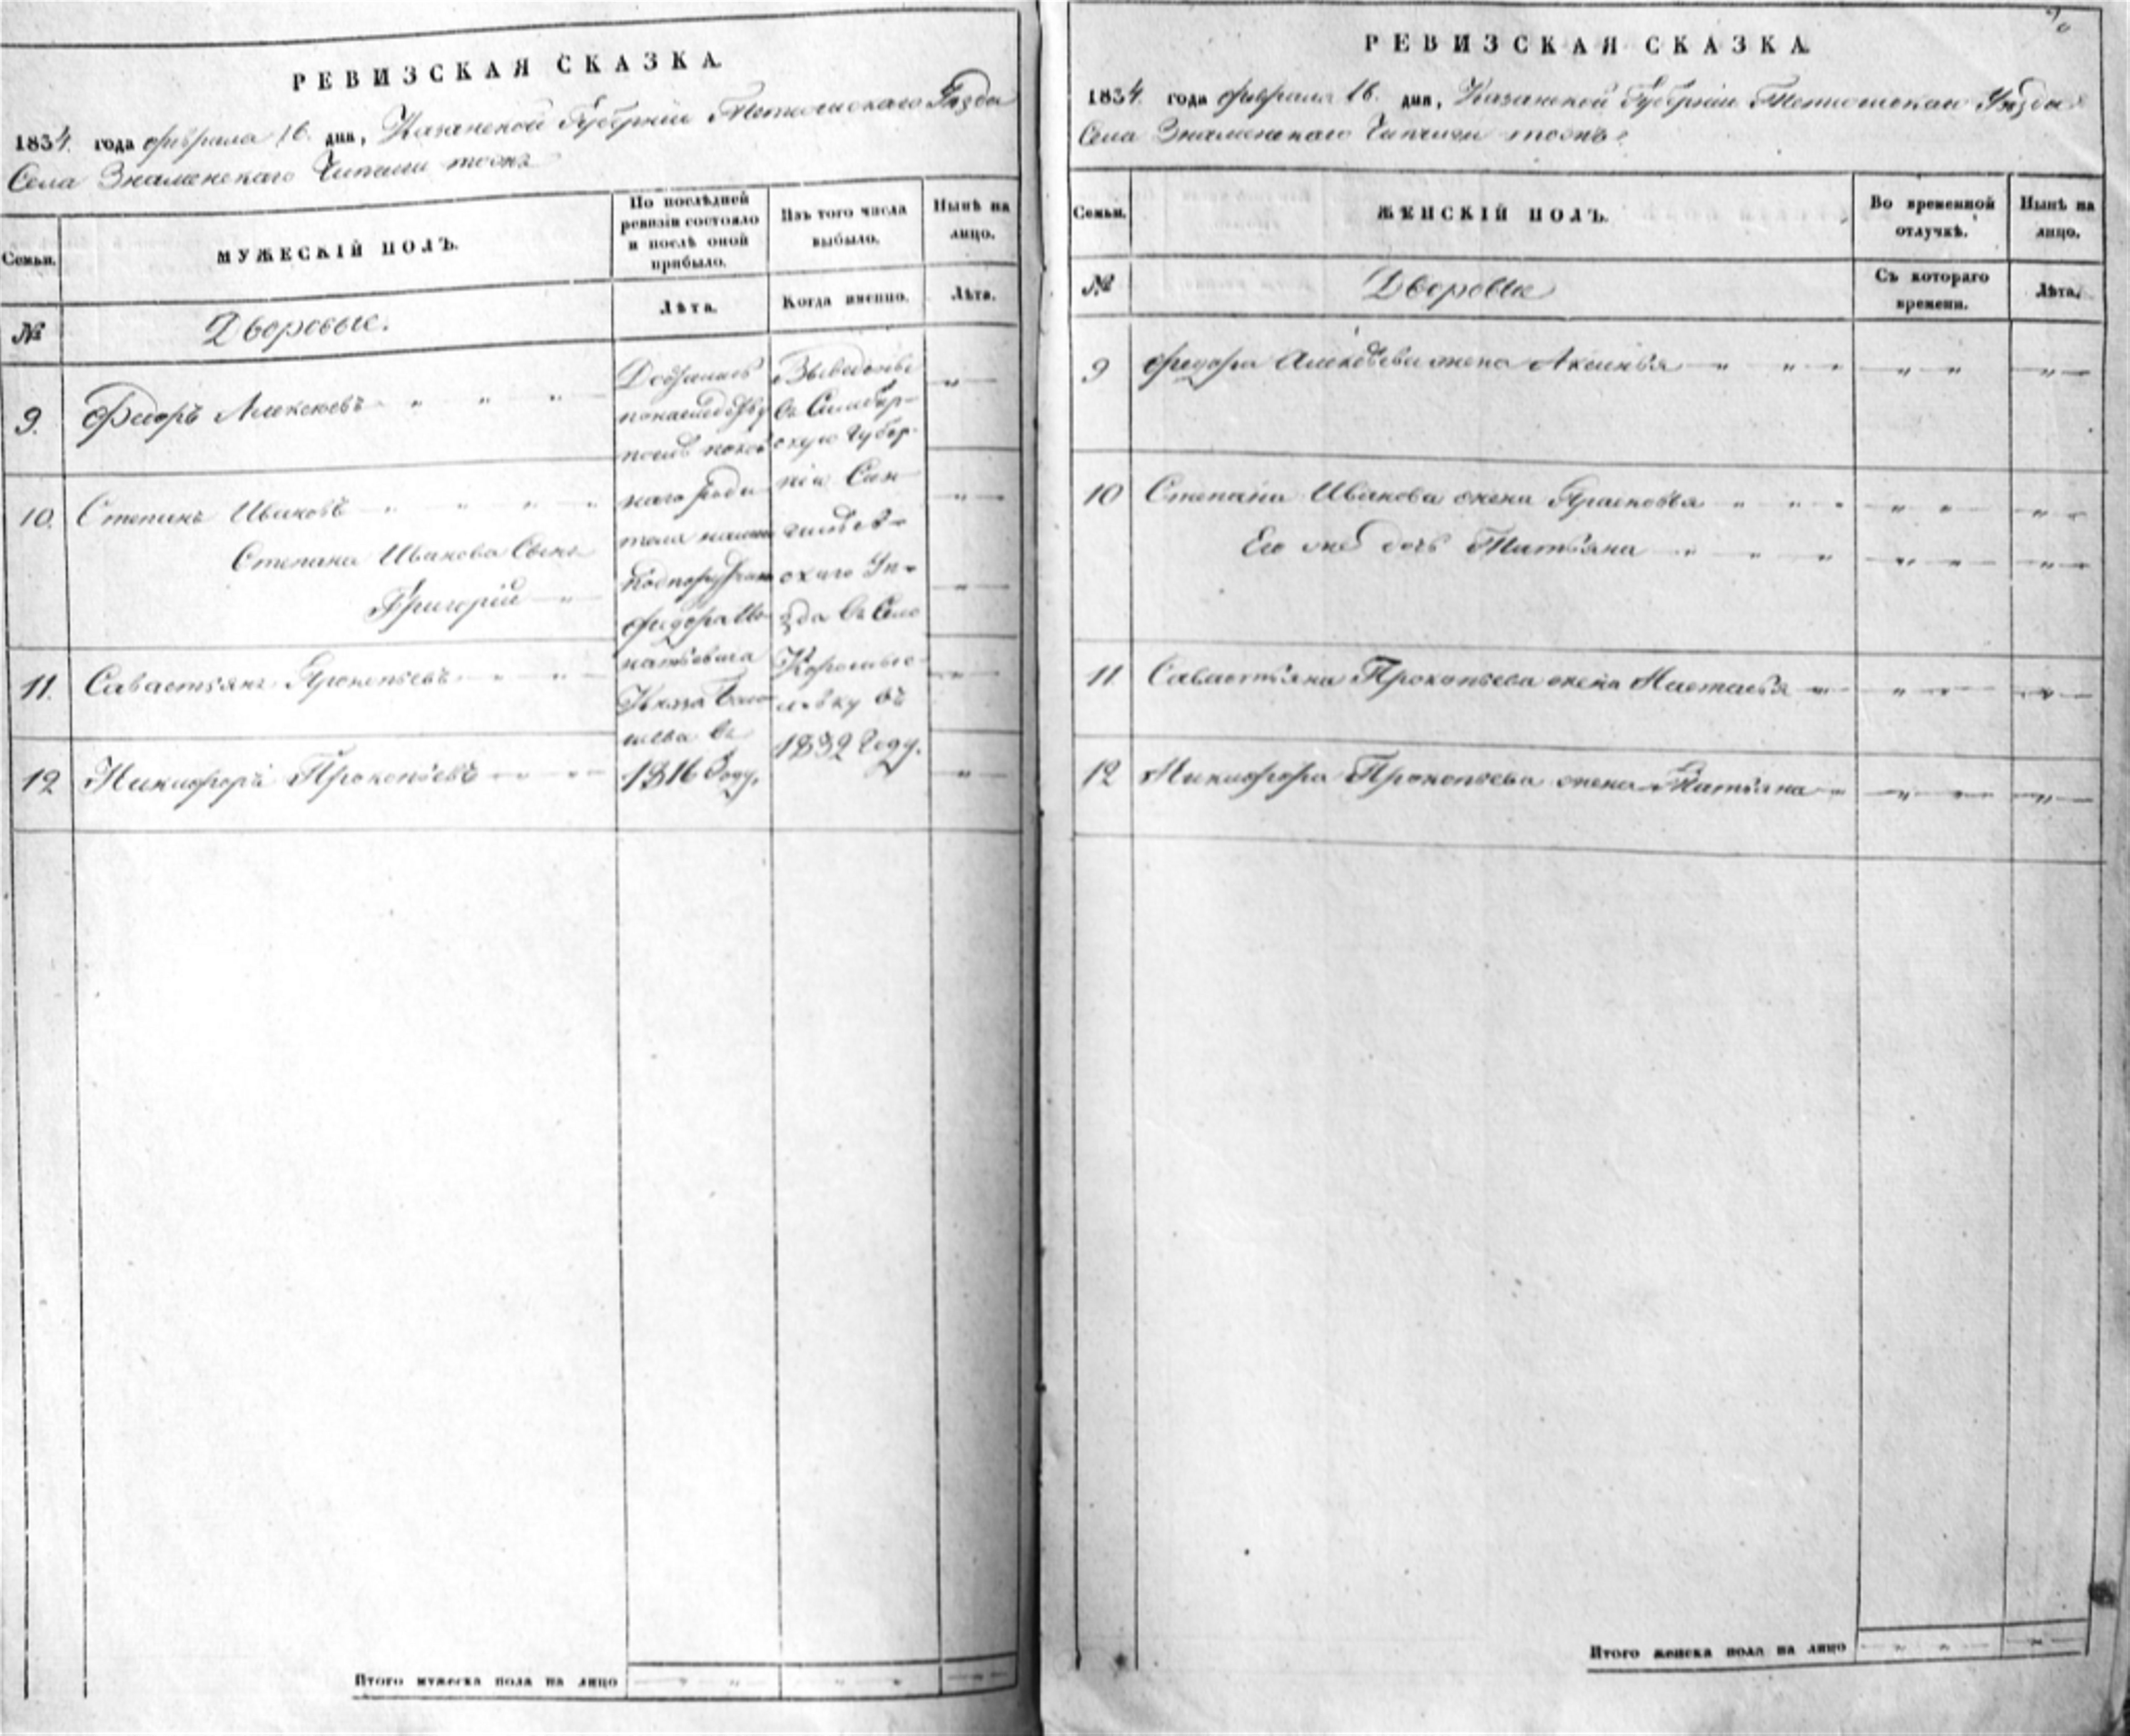 РЕВИЗСКАЯ СКАЗКА.
1834. года февраля 16. дня, Казанской Губерніи Тетюшскаго Уѣзда
Села Знаменскаго тожъ
Семьи.
МУЖЕСКІЙ ПОЛЪ.
По послѣдней
ревизіи состояло
и послѣ оной
прибыло.
Изъ того числа
выбыло.
Нынѣ на
лицо.
№
Дворовые.
Лѣта.
Когда именно.
Лѣта.
9. Федоръ Алексѣевъ
10. Степанъ Ивановъ
Степана Иванова Сынъ
Григорій
11. Савастьянъ Прокопьевъ
12 Никифоръ Прокопьевъ
Достались
по
послѣ покой
наго роди
теля
Федора Иг
натьевича
Князя
въ
1816 Году.
Выведены
въ Симбир-
скую Губер-
нію Сен
гилѣев-
скаго Уѣ-
зда въ Село
въ
1832 Году.
Итого мужеска пола на лицо
РЕВИЗСКАЯ СКАЗКА.
1834. года февраля 16. дня, Казанской Губерніи Уѣзда
Села Знаменскаго тожъ
Семьи.
ЖЕНСКІЙ ПОЛЪ.
Во временной
отлучкѣ.
Нынѣ на
лицо.
№
Дворовые
Съ котораго
времени.
Лѣта.
9 Федора Алексѣева жена Аксинья
10 Степана Иванова жена Прасковья
Его же дочь Татьяна
11. Савастьяна Прокопьева жена Настасья
12 Никифора Прокопьева жена Татьяна
Итого женска пола на лицо